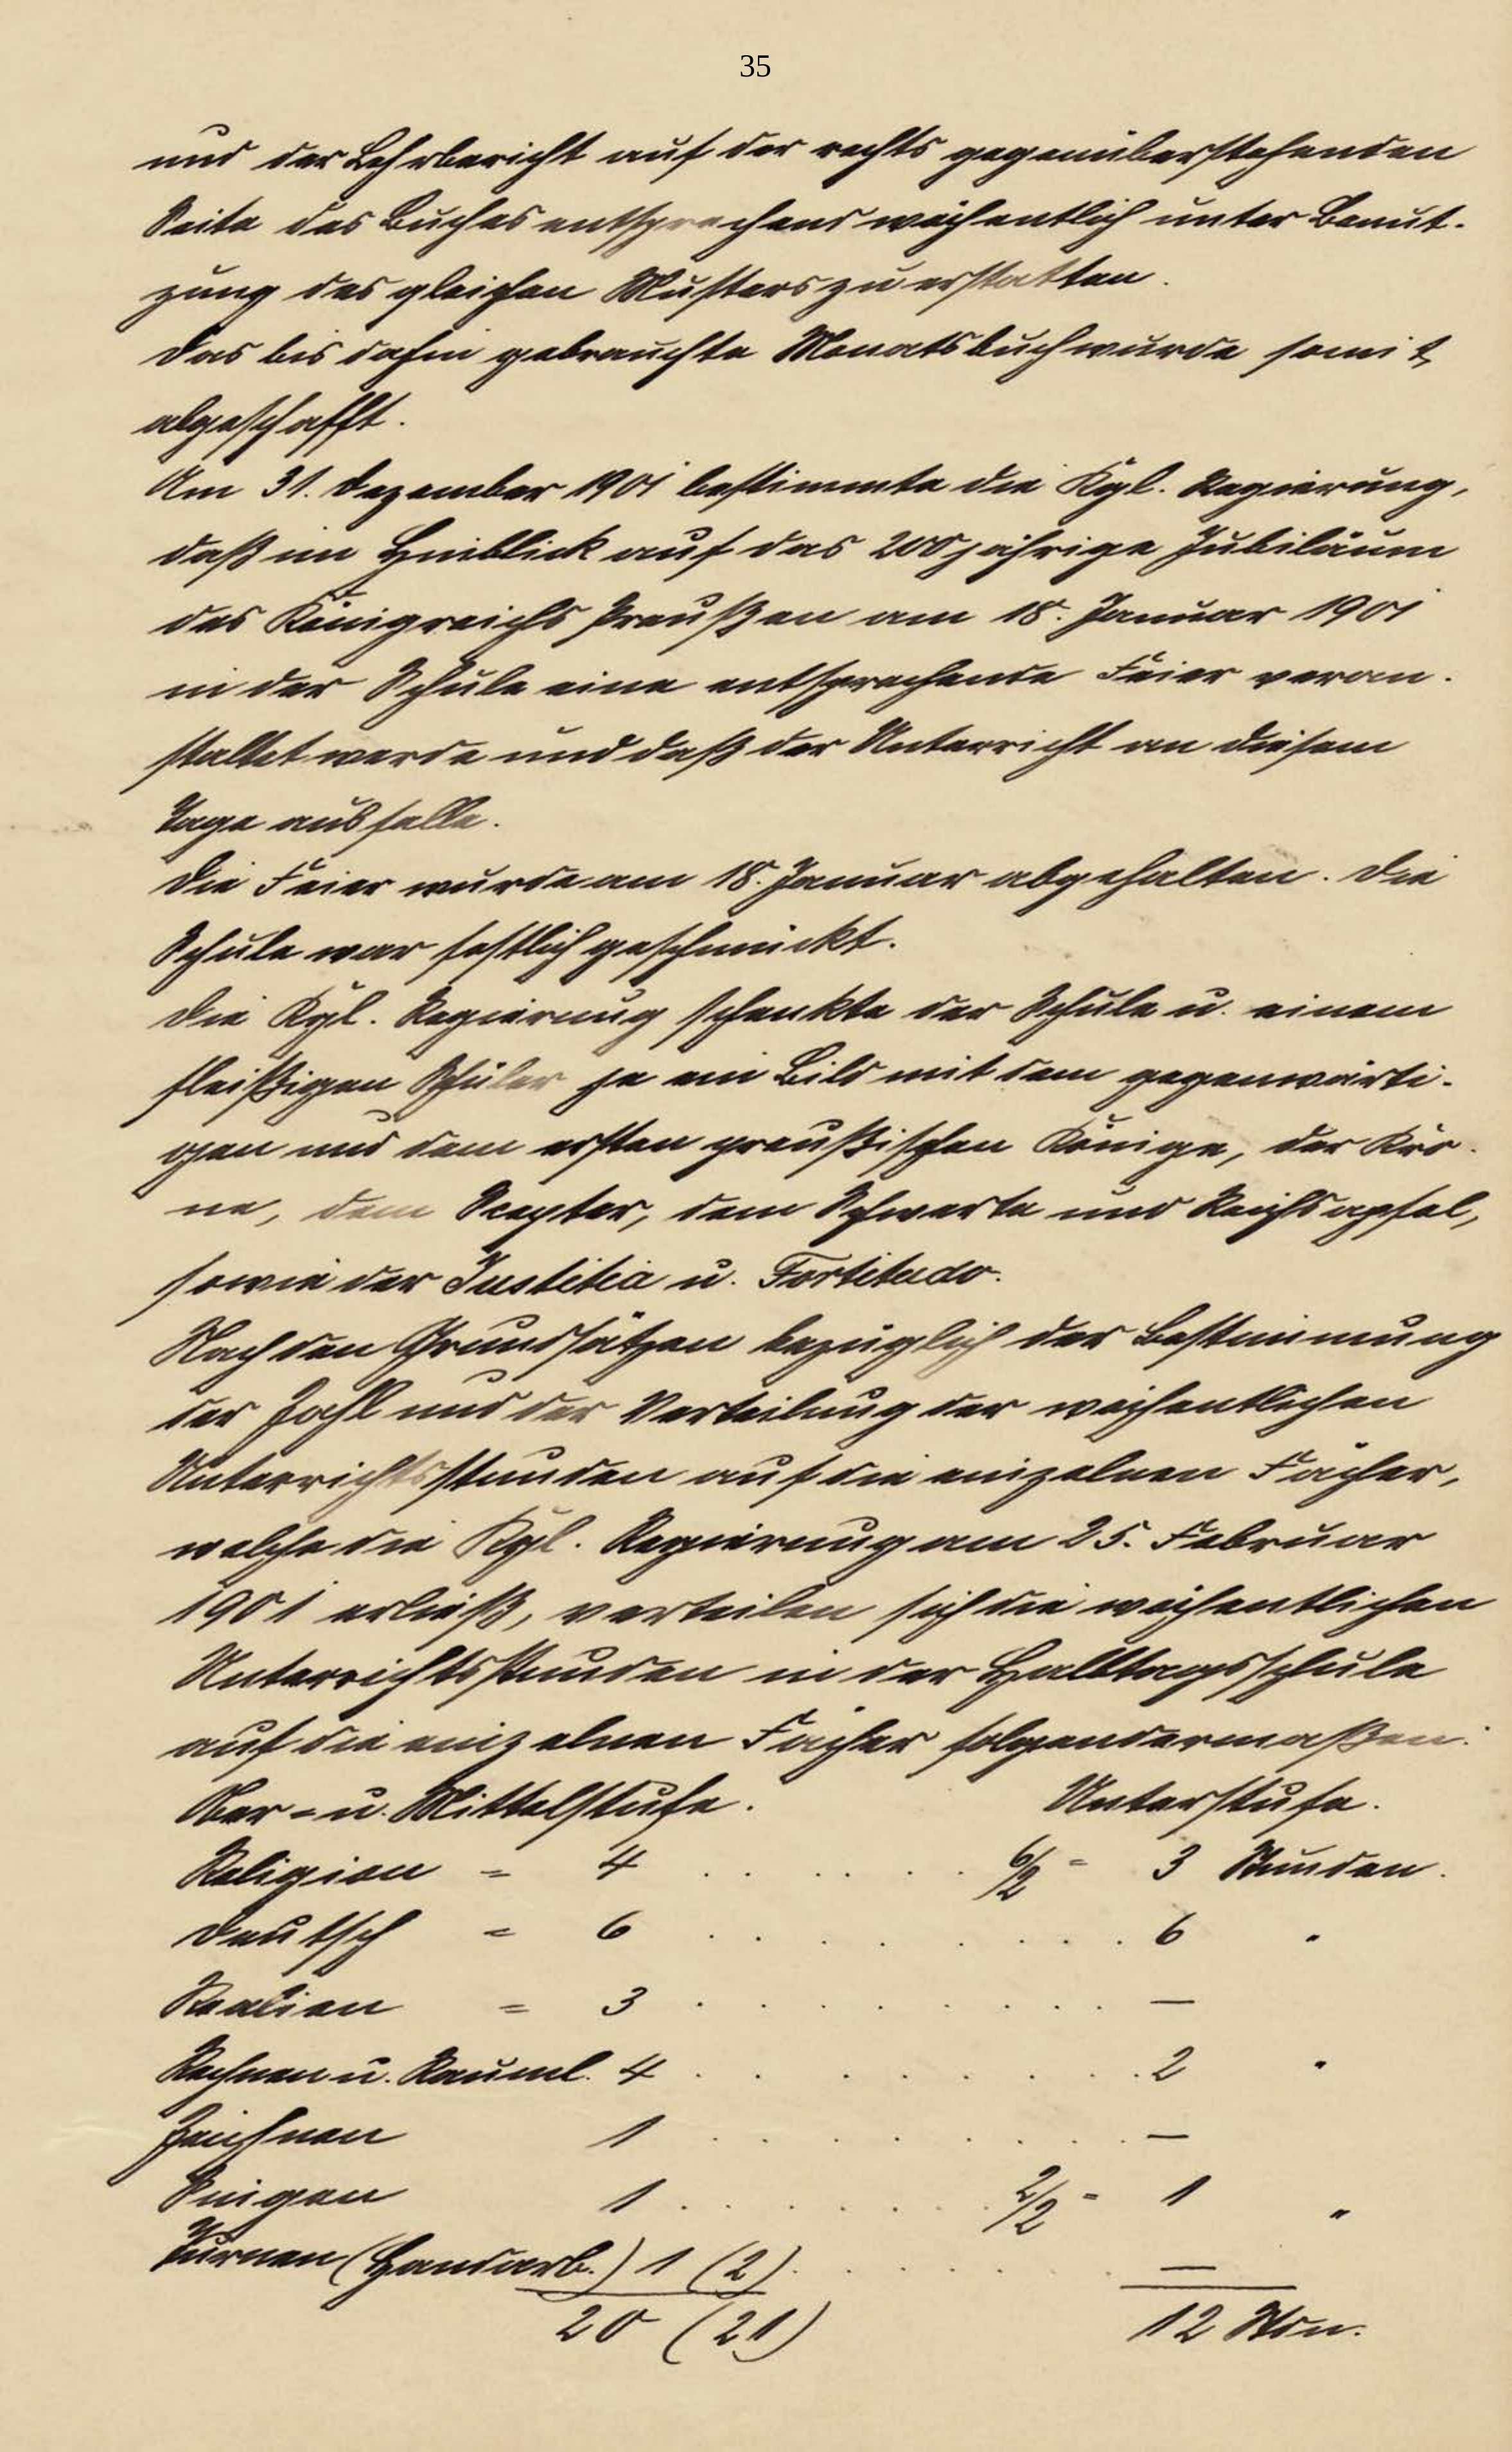 35
und der Lehrbericht auf der rechts gegenüberstehenden
Seite des Buches entsprechend wöchentlich unter Benut-
zung des gleichen Musters zu erstatten.
Das bis dahin gebrauchte Monatsbuch wurde somit
abgeschafft.
Am 31. Dezember 1901 bestimmte die Kgl. Regierung,
daß im Hinblick auf das 200jährige Jubiläum
des Königreichs Preußen am 18. Januar 1901
in der Schule eine entsprechende Feier veran-
staltet werde und daß der Unterricht an diesem
Tage ausfalle.
Die Feier wurde am 18. Januar abgehalten. Die
Schule war festlich geschmückt.
Die Kgl. Regierung schenkte der Schule u. einem
fleißigen Schüler je ein Bild mit dem gegenwärti-
gen und dem ersten preußischen Könige, der Kro-
ne, dem Scepter, dem Schwerte und Reichsapfel,
sowie der Justitia u. Fortitudo.
Nach den Grundsätzen bezüglich der Bestimmung
der Zahl und der Verteilung der wöchentlichen
Unterrichtsstunden auf die einzelnen Fächer,
welche die Kgl. Regierung am 25. Februar
1901 erließ, verteilen sich die wöchentlichen
Unterrichtsstunden in der Halbtagsschule
auf die einzelnen Fächer folgendermaßen:
Ober- u. Mittelstufe. Unterstufe.
Religion = 4 . . . . . . 6/2 = 3 Stunden.
Deutsch = 6 . . . . . . . . 6 "
Realien = 3 . . . . . . . . —
Rechnen u. Rauml. 4 . . . . . . . . 2 "
Zeichnen 1 . . . . . . . . —
Singen 1 . . . . . . 2/2 = 1 "
Turnen (Handarb.) 1 (2) . . . . . . —
20 (21) 12 Stdn.